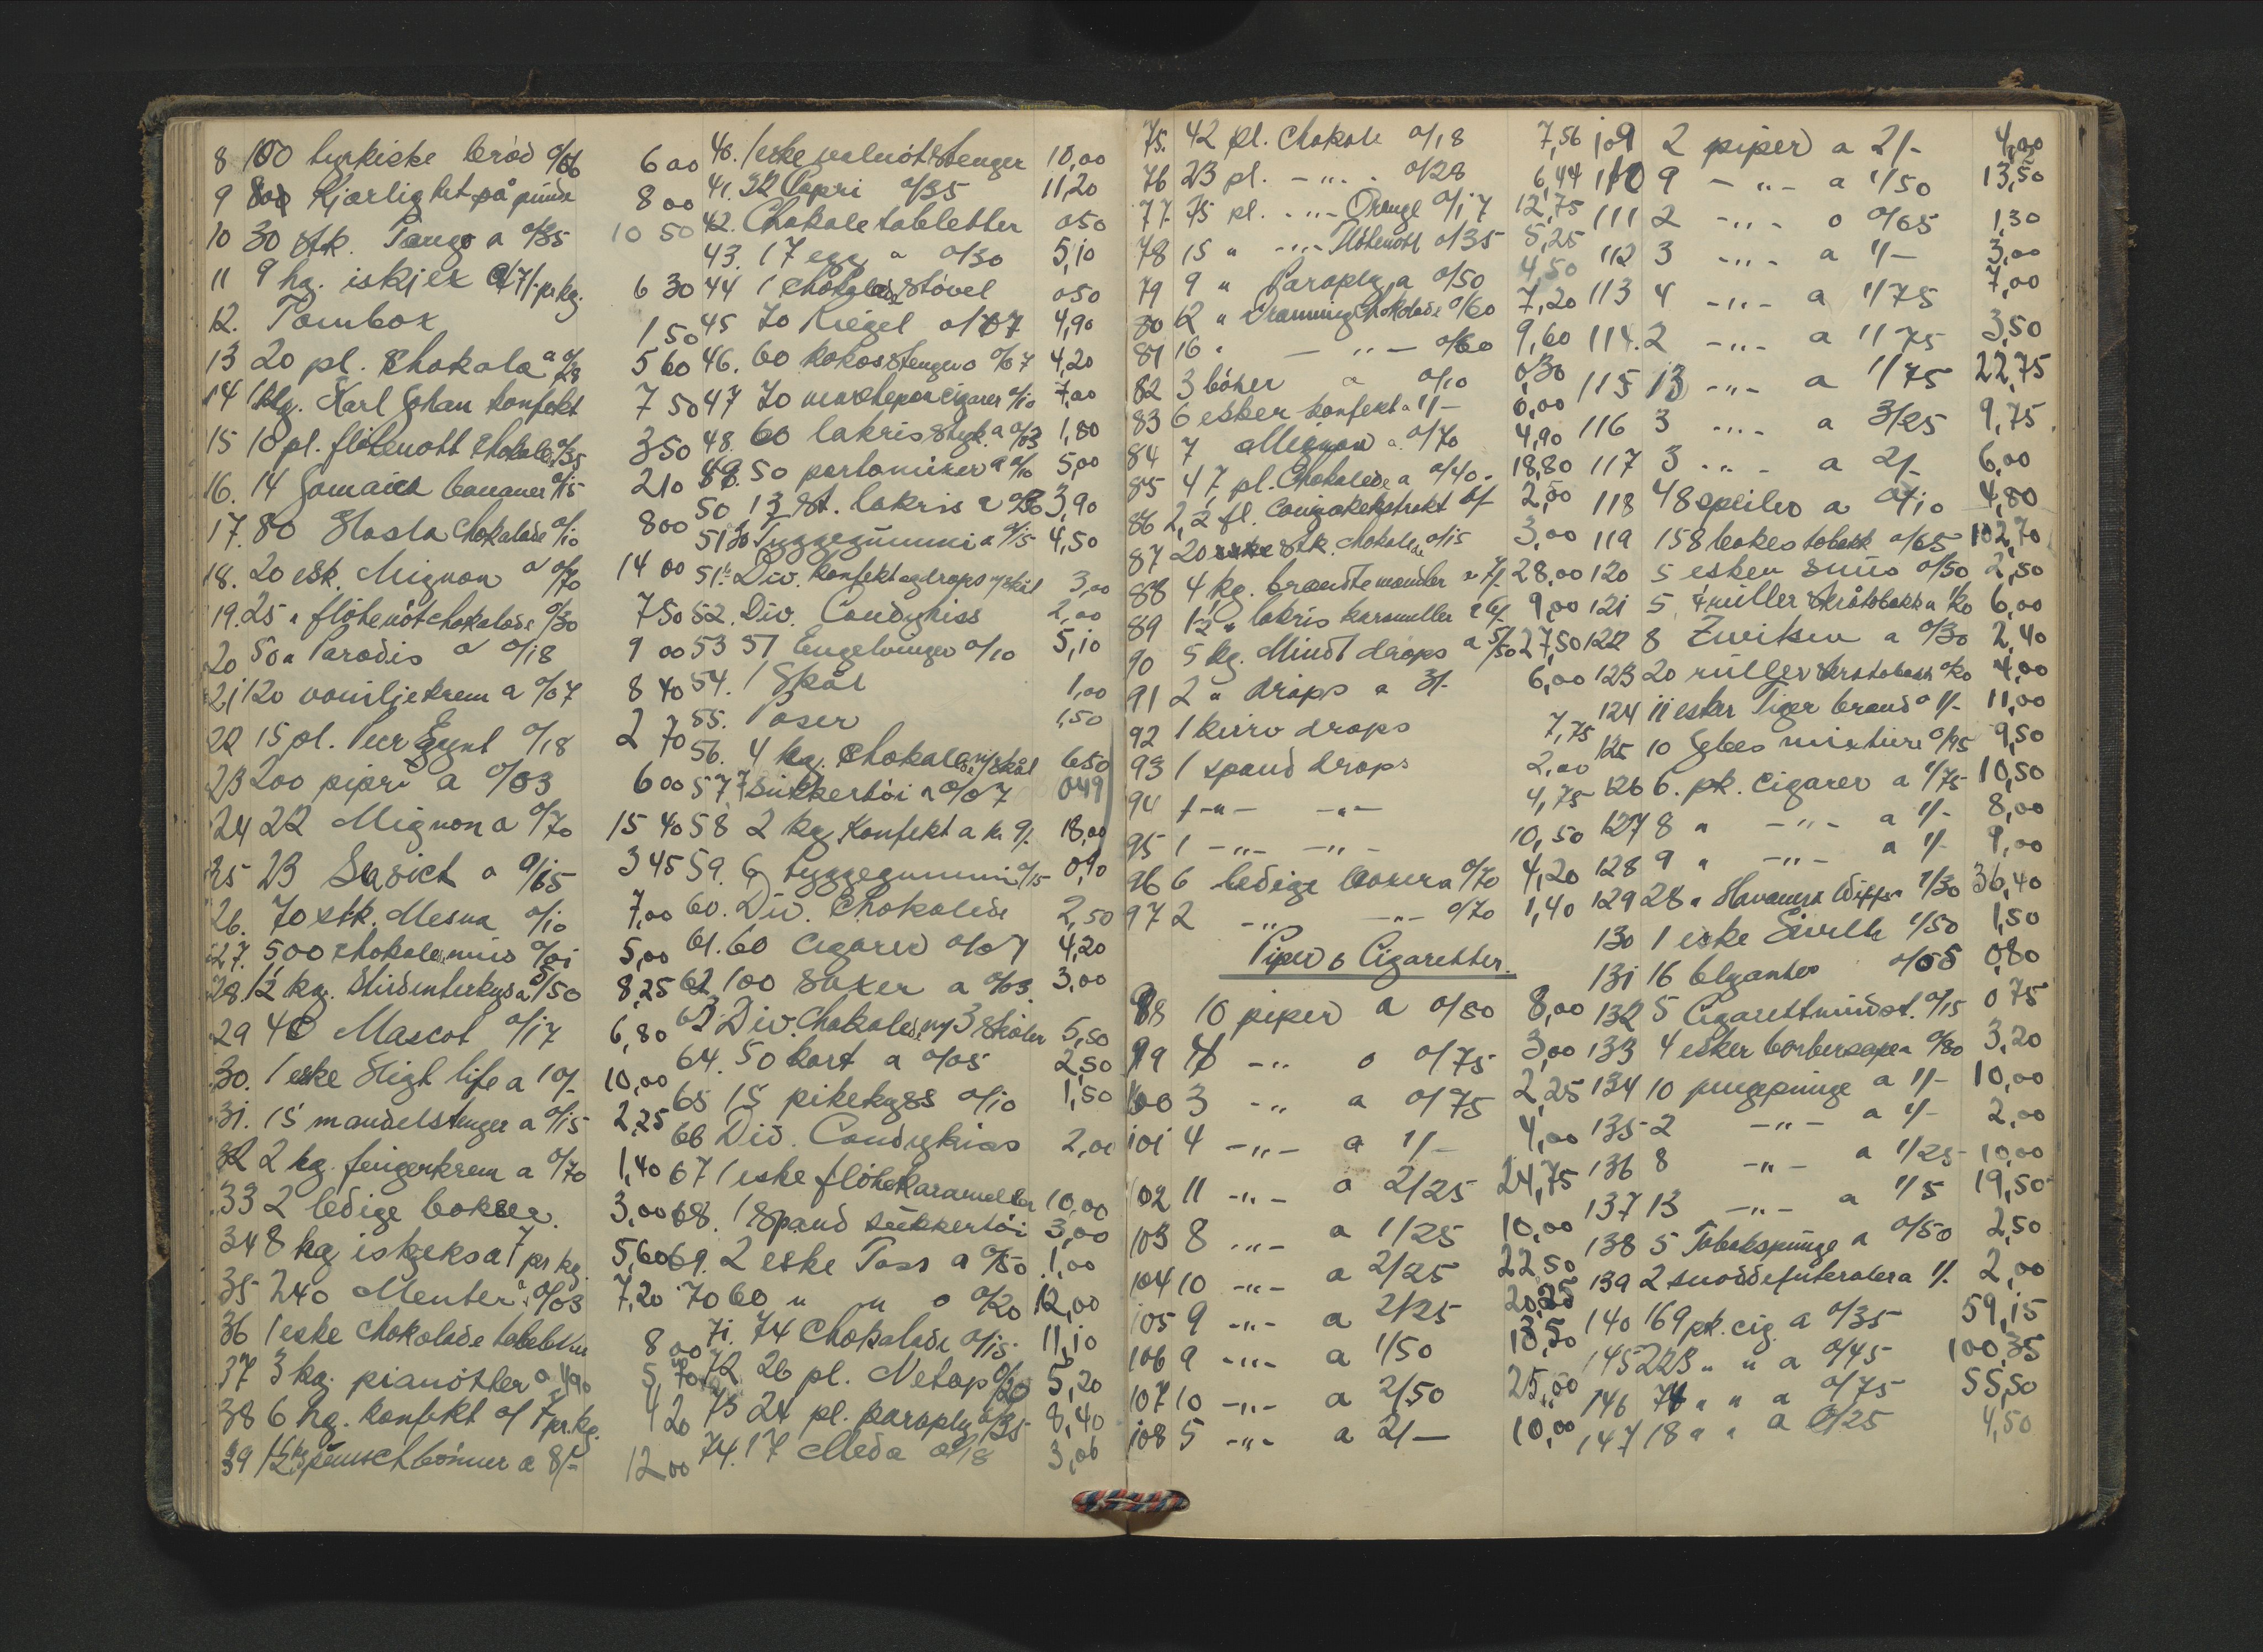 8 100 tyrkiske brød a 0/06 6 00
9 800 Kjærlighet på pinde 8 00
10 30 stk. Tango a 0/35 10 50
11 9 hg. iskjex a 7/- pr kg. 6 30
12. Tombox 1 50
13 20 pl. Chokola a 0/28 5 60
14 1 kg. Karl Johan konfekt 7 50
15 10 pl. fløtenøtt chokolade 0/35 3 50
16. 14 Jamaica bananer 0/15 2 10
17. 80 Hasla Chokalade 0/10 8 00
18. 20 esk. Mignon a 0/70 14 00
19. 25 " fløtenøtchokolade 0/30 7 50
20 50 " Paradis a 0/18 9 00
21 120 vaniljekrem a 0/07 8 40
22 15 pl. Peer Gynt 0/18 2 70
23 200 piper a 0/03 6 00
24 22 Mignon a 0/70 15 40
25 23 a 0/15 3 45
26. 70 stk. Mesna 0/10 7,00
27. 500 chokolademus 0/01 5,00
28. 1½ kg. Studenterkyss a 5/50 8,25
29 40 Mascot 0/17 6,80
30. 1 eske High life a 10/- 10,00
31. 15 mandelstenger a 0/15 2,25
32 2 kg. fingerkrem a 0/70 1,40
33 2 ledige bokser. 3,00
34 8 hg iskeks a 7 pr kg. 5,60
35 240 Menter a 0/03 7,20
36 1 eske chokolade tabletter 8 00
37 3 kg. pianøtter a 1/90 5,70
38 6 hg. konfekt a/ 7 pr. kg. 4 20
39 1½ kg punschbønner a 8/- 12 00
40. 1 eske valnøtstenger 10,00
41. 32 Capri 0/35 11,20
42. Chokoletabletter 0 50
43. 17 egg a 0/30 5,10
44 1 Chokoladestøvel 0 50
45 70 Riegel a/07 4,90
46. 60 kokosstenger a 0/07 4,20
47 70 marsepancigarer 0/10 7,00
48. 60 lakrisstyk. a 0/03 1,80
49. 50 a 0/10 5,00
50 13 st. lakris a 0/30 3,90
51 30 Tyggegummi a 0/15 4,50
51b Div. konfekt og drops m/skål 3,00
52. Div. Candykiss 2,00
53 51 Engelvinger 0/10 5,10
54. 1 Skål 1,00
55. Poser 1,50
56. 4 kg. Chokolade m/skål 6 50
57 7 sukkertøi a 0/07 0 49
58 2 kg konfekt a kr 9/- 18,00
59. 6 tyggegummi 0/15 0,90
60. Div. Chokolade 2,50
61. 60 Cigarer 0/07 4,20
62 100 Saxer a 0/03. 3,00
63 Div. Chokolade m/ 3 skåler 5,50
64. 50 kort a 0/05 2,50
65 15 pikekyss 0/10 1,50
66 Div. Candykiss 2,00
67 1 eske fløtekarameller 10,00
68. 1 Spand sukkertøi 3,00
69. 2 eske Toss a 0/50 1,00
70 60 " " a 0/20 12,00
71. 74 Chokalade 0/15 11,10
72 26 pl. Netop 0/20 5,20
73 24 pl. paraply 0/35 8,40
74. 17 Meda 0/18 3,06
75. 42 pl. Chokola 0/18 7,56
76 23 pl. - " - 0/28 6,44
77. 75 pl. - " - Orange 0/17 12,75
78 15 " - " - Fløtenøtt 0/35 5,25
79 9 " Paraply a 0/50 4,50
80 12 " Dronning Chokolade 0/60 7,20
81 16 " - " - 0/60 9,60
82 3 bøker a 0/10 0,30
83 6 esker konfekt a 1/- 6,00
84 7 Mignon a 0/70 4,90
85 47 pl. Chokolade a 0/40. 18,80
86 2,2 fl. 2,50
87 20 stk. chokolade 0/15 3,00
88 4 kg. brendte mandler a 7/- 28,00
89 1½ " lakris karameller a 6/- 9,00
90 5 kg. Mindt drops a 5/50 27,50
91 2 " drops a 3/- 6,00
92 1 kurv drops 7,75
93 1 spand drops 2,00
94 1 - " - - " - 4,75
95 1 - " - - " - 10,50
96 6 ledige boxer a 0/70 4,20
97 2 - " - - " - 0/70 1,40
Piper & Cigaretter.
98 10 piper a 0/80 8,00
99 4 - " a 0/75 3,00
100 3 - " a 0/75 2,25
101 4 - " - a 1/- 4,00
102 11 - " - a 2/25 24,75
103 8 - " - a 1/25 10,00
104 10 - " - a 2/25 22 50
105 9 - " - a 2/25 20,25
106 9 - " - a 1/50 13,50
107 10 - " - a 2/50 25,00
108 5 - " - a 2/- 10,00
109 2 piper a 2/- 4,00
110 9 - " - a 1/50 13,50
111 2 - " - a 0/65 1,30
112 3 - " - a 1/- 3,00
113 4 - " - a 1/75 7,00
114. 2 - " - a 1/75 3,50
115 13 - " - a 1/75 22,75
116 3 - " - a 3/25 9,75
117 3 - " - a 2/- 6,00
118 48 speiler a 0/10 4,80
119 158 bokes tobakk 0/65 102,70
120 5 esker snus 0/50 2,50
121 5 ruller skråtobakk a 1/20 6,00
122 8 a 0/30 2,40
123 20 ruller skråtobakk 0/20 4,00
124 11 esker Tiger brand a 1/- 11,00
125 10 mixture 0/95 9,50
126 6. pk. Cigarer a 1/75 10,50
127 8 " - " - a 1/- 8,00
128 9 " - " - a 1/- 9,00
129 28 " Havanna 1/30 36,40
130 1 eske 1/50 1,50
131 16 blyanter 0/05 0,80
132 5 Cigarettmundst. 0/15 0 75
133 4 esker barbersåpe a 0/80 3,20
134 10 pengepunge a 1/- 10,00
135 2 - " - a 1/- 2,00
136 8 - " - a 1/25 10,00
137 13 - " - a 1/5 19,50
138 5 Tobakspunge a 0/50 2,50
139 2 a 1/- 2,00
140 169 pk. cig. a 0/35 59,15
145 223 " " a 0/45 100,35
146 74 " " a 0/75 55,50
147 18 " " a 0/25 4,50